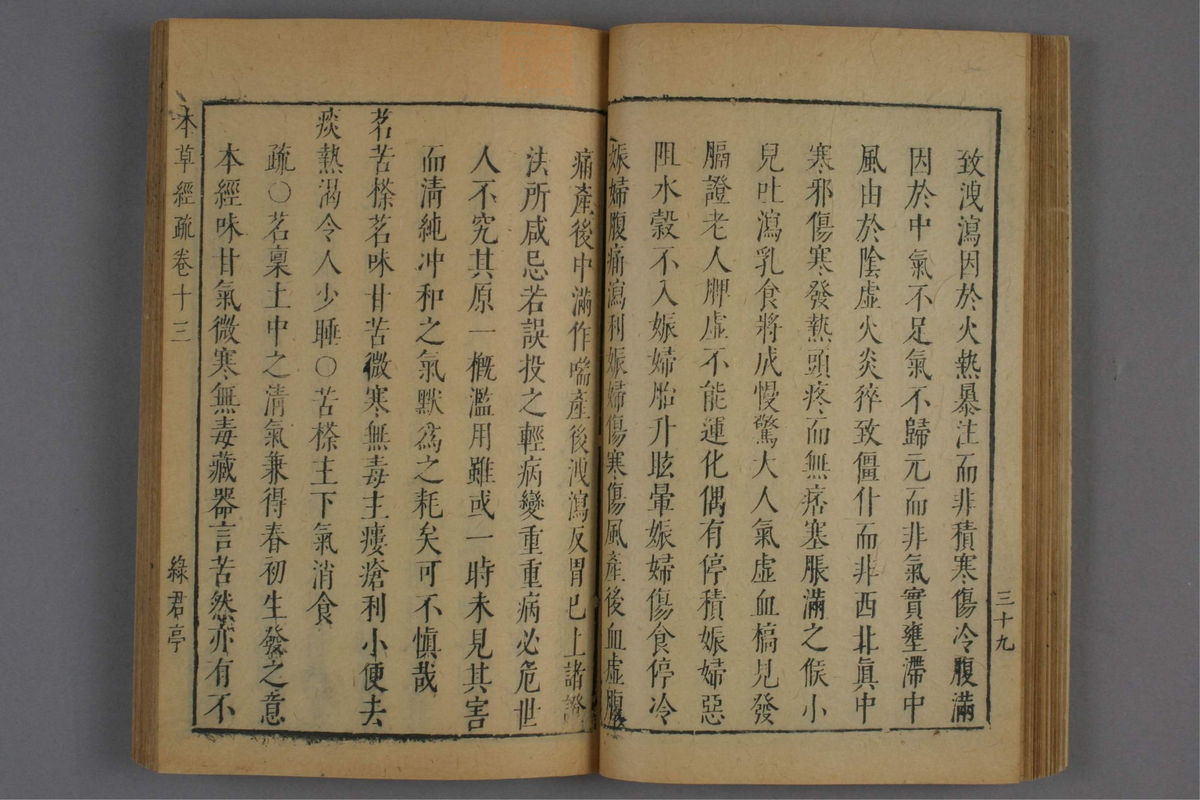 三十九
致洩瀉因於火熱暴注而非積寒傷冷腹滿
因於中氣不足氣不歸元而非氣實壅滯中
風由於陰虛火炎猝致僵仆而非西北真中
寒邪傷寒發熱頭疼而無痞塞脹滿之候小
兒吐瀉乳食將成慢驚大人氣虛血槁見發
膈證老人脾虛不能運化偶有停積娠婦惡
阻水穀不入娠婦胎升眩暈娠婦傷食停冷
娠婦腹痛瀉利娠婦傷寒傷風產後血虛腹
痛產後中滿作喘產後洩瀉反胃已上諸證
法所咸忌若誤投之輕病變重重病必危世
人不究其原一概濫用雖或一時未見其害
而清純冲和之氣默為之耗矣可不慎哉
茗苦㯘茗味甘苦微寒無毒主瘻瘡利小便去
痰熱渴令人少睡〇苦㯘主下氣消食
疏〇茗稟土中之清氣兼得春初生發之意
本經味甘氣微寒無毒藏器言苦然亦有不
本草經疏卷十三
綠君亭